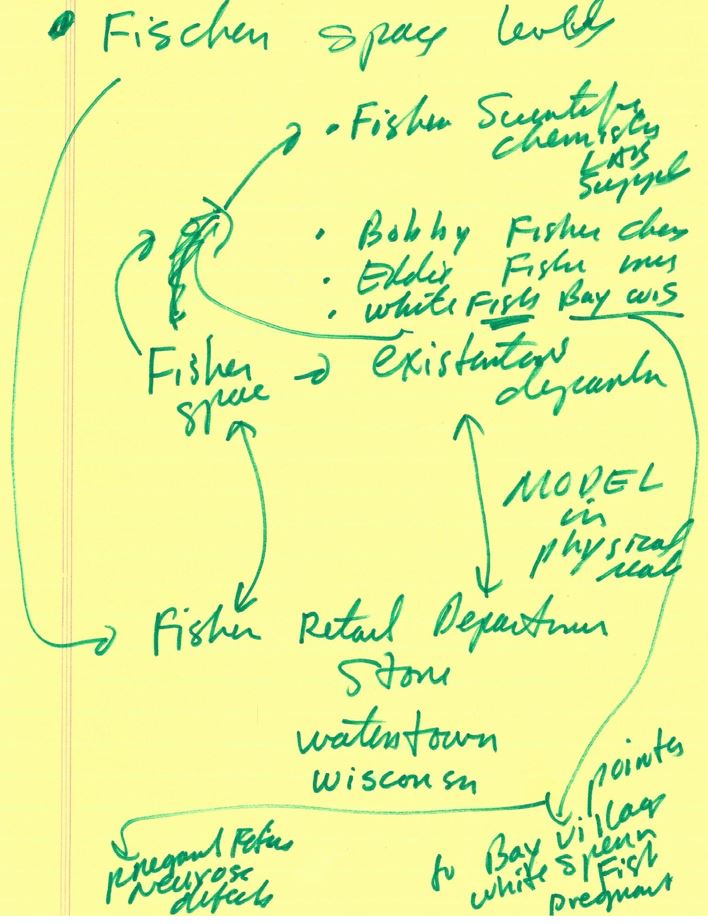 Fischer space levels
• Fisher Scientific
chemistry
LAB
Suppl
• Bobby Fisher chess
• Eddie Fisher mus
• white Fish Bay wis
Fisher
space
existentons
MODEL
in
physical
Fisher Retail Department
Store
watertown
wisconsin
pointes
to Bay Village
white Sperm
Fish
pregnant
pregnant Fetus
Neurose
defects